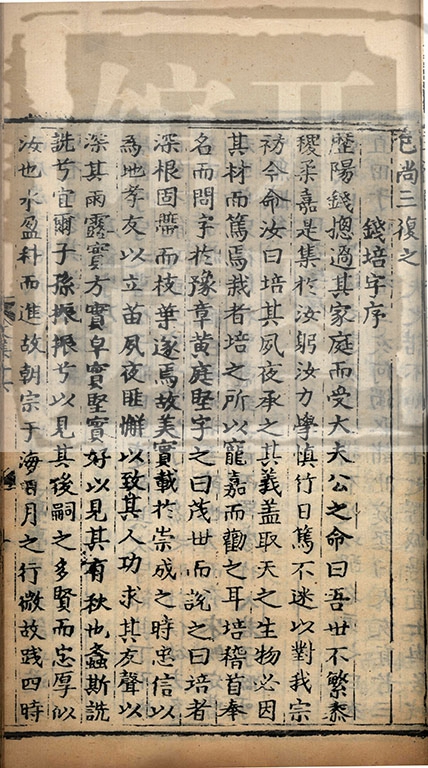 色尚三復之
錢培字序
歷陽錢摠過其家庭而受大夫公之命曰吾世不繁黍
稷柔嘉是集於汝躬汝力學慎行日篤不迷以對我宗
祊今命汝曰培其夙夜承之其義盖取天之生物必因
其材而篤焉栽者培之所以寵嘉而勸之耳培稽首奉
名而問字於豫章黃庭堅字之曰茂世而說之曰培者
深根固蔕而枝葉遂焉故美實載於崇成之時忠信以
為地孝友以立苗夙夜匪懈以致其人功求其友聲以
深其雨露實方實皁實堅實好以見其有秋也螽斯詵
詵兮宜爾子孫振振兮以見其後嗣之多賢而忠厚似
汝也水盈科而進故朝宗于海日月之行微故踐四時